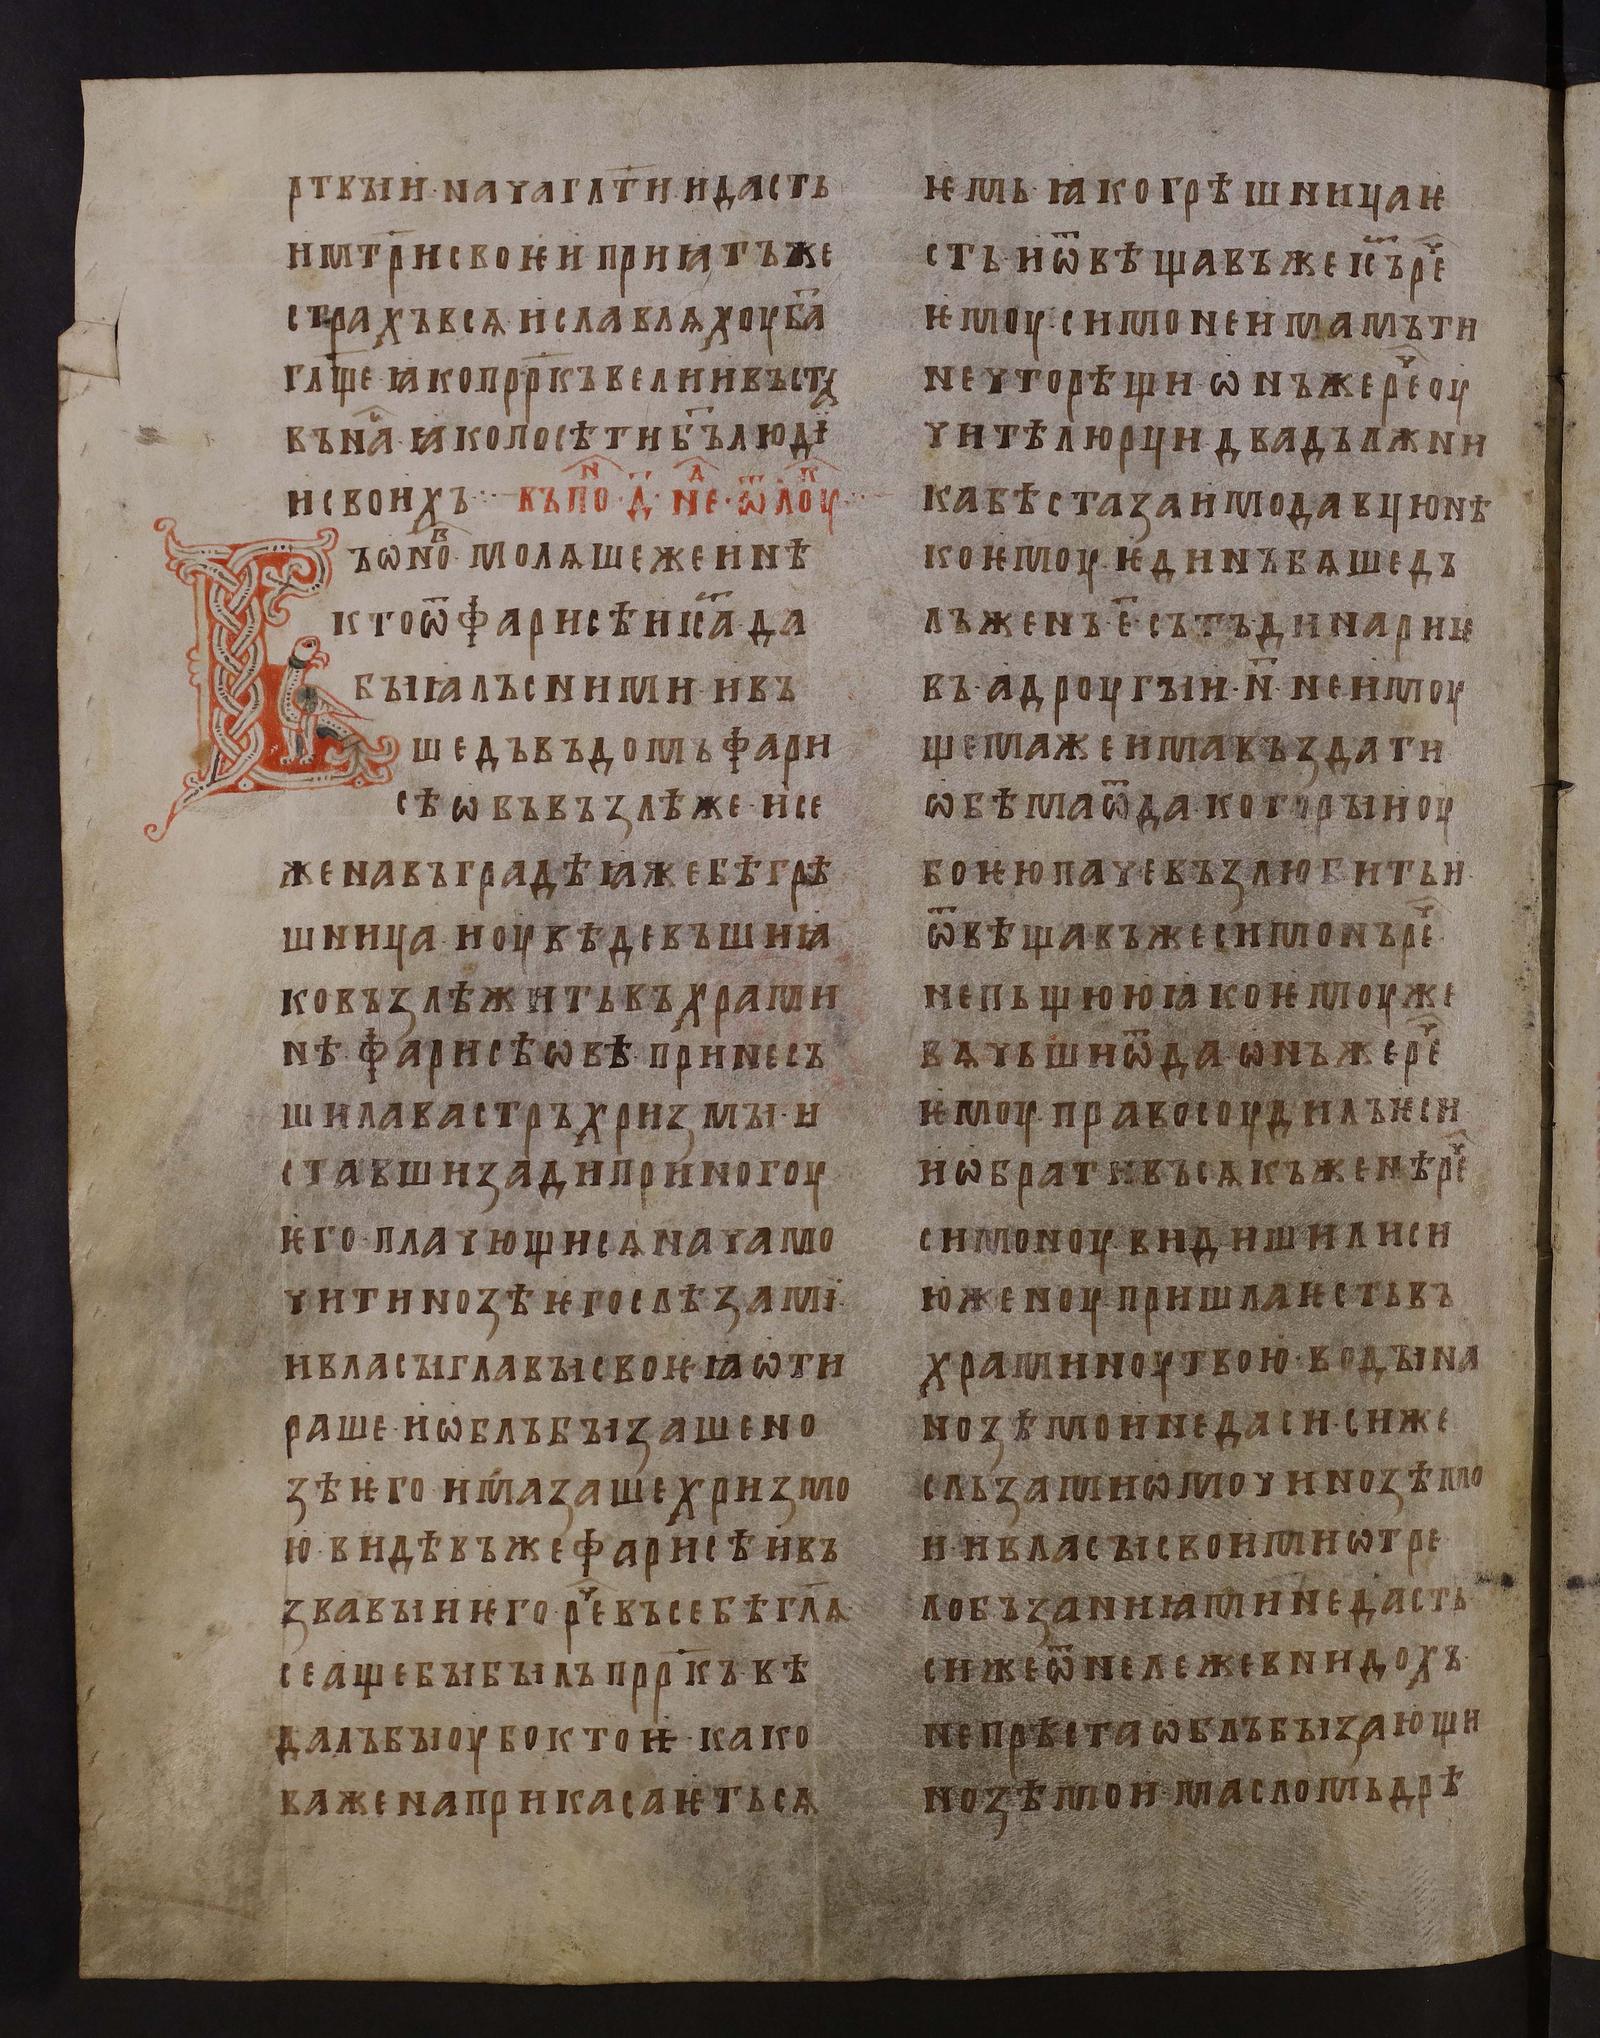 ртвыи· начагл҃ти идасть
имт҃рисвоѥи приꙗтъже
страхъвсѧ иславлѧхоуб҃а
гл҃ще ꙗкопрр҃къвелиивъста
въна ꙗкопосѣтиб҃ълюди
исвоихъ·:· въпоⷩ҇·д҃·неⷣ҇·ѿлоуⷦ҇
Въѡноⷡ҇ молѧшежеинѣ
ктоѿфарисѣиіс҃ада
быꙗлъснимии· ивъ
шедъвъдомъфари
сѣѡвъвъзлѣже·исе
женавъградѣꙗжебѣгрѣ
шница· ноувѣдевъшиꙗ
ковъзлѣжитьвъхрами
нѣ·фарисѣѡвѣ·принесъ
шилавастръхризмы·и
ставшизадипринногоу
ѥго·плачющисѧначамо
читинозѣѥгослѣзамі·
ивласыглавысвоѥꙗѡти
раше·иѡблъбызашено
зѣѥго·имазашехризмо
ю·видѣвъжефарисѣивъ
звавыиѥгореⷱ҇въсебѣгл҃ѧ
сеащебыбылъпрр҃къвѣ
далъбыоубоктоѥ·како
важенаприкасаѥтьсѧ
ѥмь·ꙗкогрѣшницаѥ
сть·иѿвѣщавъжеіс҃ъреⷱ҇
ѥмоу·симонеимамъти
нечторѣщи·ѡнъжереⷱ҇оу
чителюрци·двадължни
кабѣстазаимодавцюнѣ
коѥмоу·ѥдинъбѧшедъ
лъженъ·е҃·сътъдинариѥ
въ·адроугыи·н҃·неимоу
щемажеимавъздати
ѡбѣмаѿда·которыиоу
боѥюпачевъзлюбитьи·
ѿвѣщавъжесимонъреⷱ҇
непьщююꙗкоѥмоуже
вѧчьшиѿда·ѡнъжереⷱ҇
ѥмоу·правосоудилъѥси
иѡбративъсѧкъженѣреⷱ҇
симоноу·видишилиси
юженоу·пришлаѥстьвъ
храминоутвою·водына
нозѣмоинедаси·сиже
сльзамиѡмочинозѣмо
и·ивласысвоимиѡтре
лобъзаниꙗминедасть
сижеѿнележевнидохъ
непрѣстаѡблъбызающи
нозѣмои·масломьдрѣ